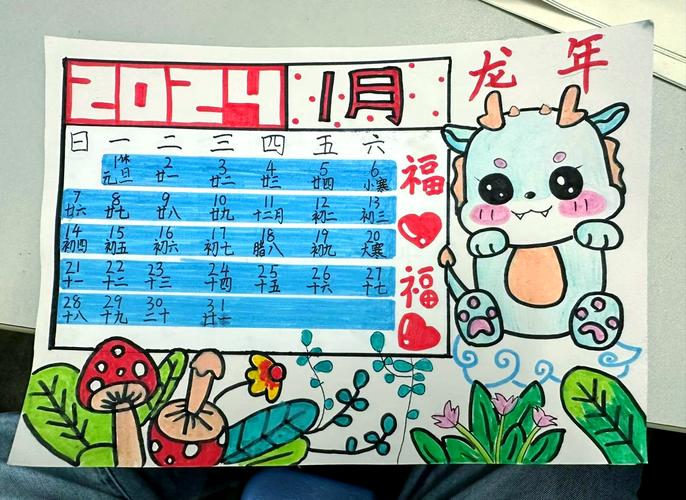 龙年
2024 1月
日 一 二 三 四 五 六
1休 2 3 4 5 6
元旦 廿一 廿二 廿三 廿四 小寒
7 8 9 10 11 12 13
廿六 廿七 廿八 廿九 十二月 初二 初三
14 15 16 17 18 19 20
初四 初五 初六 初七 腊八 初九 大寒
21 22 23 24 25 26 27
十一 十二 十三 十四 十五 十六 十七
28 29 30 31
十八 十九 二十
福
福